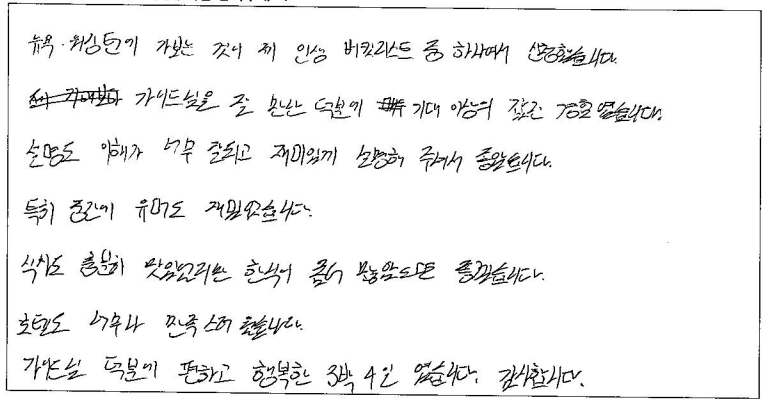 뉴욕·워싱턴에 가보는 것이 제 인생 버킷리스트 중 하나여서 신청했습니다.
가이드님을 잘 만난 덕분에 기대 이상의 값진 경험 였습니다.
설명도 이해가 너무 잘되고 재미있게 설명해 주셔서 좋았습니다.
특히 중간에 유머도 재밌었습니다.
식사도 충분히 맛있었지만 한식이 좀더 많았으면 좋겠습니다.
호텔도 너무나 만족스러웠습니다.
가이드님 덕분에 편하고 행복한 3박 4일 였습니다. 감사합니다.